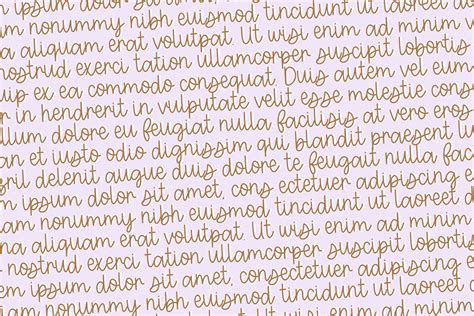 am nonummy nibh euismod tincidunt ut laoreet
na aliquam erat volutpat. Ut wisi enim ad minim
nostrud exerci tation ullamcorper suscipit lobortis
uip ex ea commodo consequat. Duis autem vel eum
r in hendrerit in vulputate velit esse molestie cons
illum dolore eu feugiat nulla facilisis at vero eros
an et iusto odio dignissim qui blandit praesent lu
zril delenit augue duis dolore te feugait nulla fac
em ipsum dolor sit amet, cons ectetuer adipiscing e
am nonummy nibh euismod tincidunt ut laoreet d
na aliquam erat volutpat. Ut wisi enim ad minim
nostrud exerci tation ullamcorper suscipit lobortis
em ipsum dolor sit amet, consectetuer adipiscing e
am nonummy nibh euismod tincidunt ut laoreet d
aliquam erat volutpat. Ut wisi enim ad minim